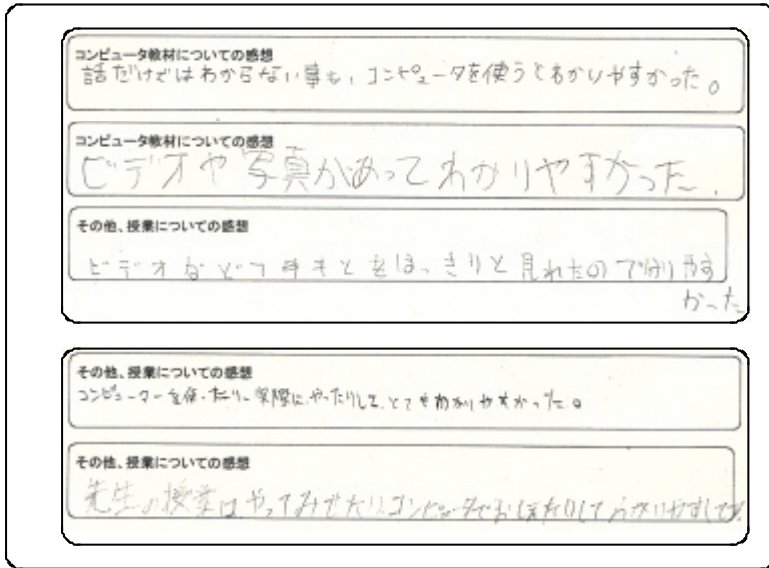 コンピュータ教材についての感想
話だけではわからない事も、コンピュータを使うとわかりやすかった。
コンピュータ教材についての感想
ビデオや写真があってわかりやすかった.
その他、授業についての感想
ビデオなどで手もとをはっきりと見れたので分りやす
かった
その他、授業についての感想
コンピューターを使ったり、実際にやったりして、とてもわかりやすかった。
その他、授業についての感想
先生の授業はやってみせたり、コンピュータでおしえたりしてわかりやすい